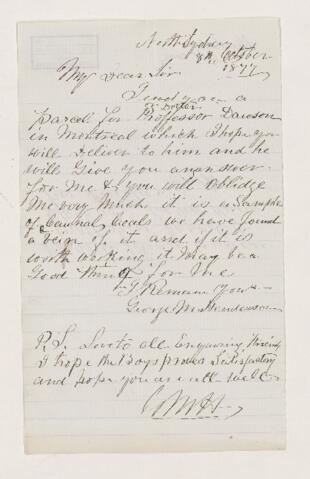 North Sydney
8th October
1877
My Dear Sir
I send you a
parcel for Professor Dawson
or Docter
in Montreal which I hope you
will Deliver to him and he
will Give you an answer
for Me & you will Oblidge
Me very Much it is a Sample
of Cannal Coals we have found
a vein of it and if it is
worth working it May be a
Good thing for Me
I Remain yours
George M Henderson
P.S. Love to all Enquiring Friends
I hope the Boys proves Satisfactory
and hope you are all well
GMH